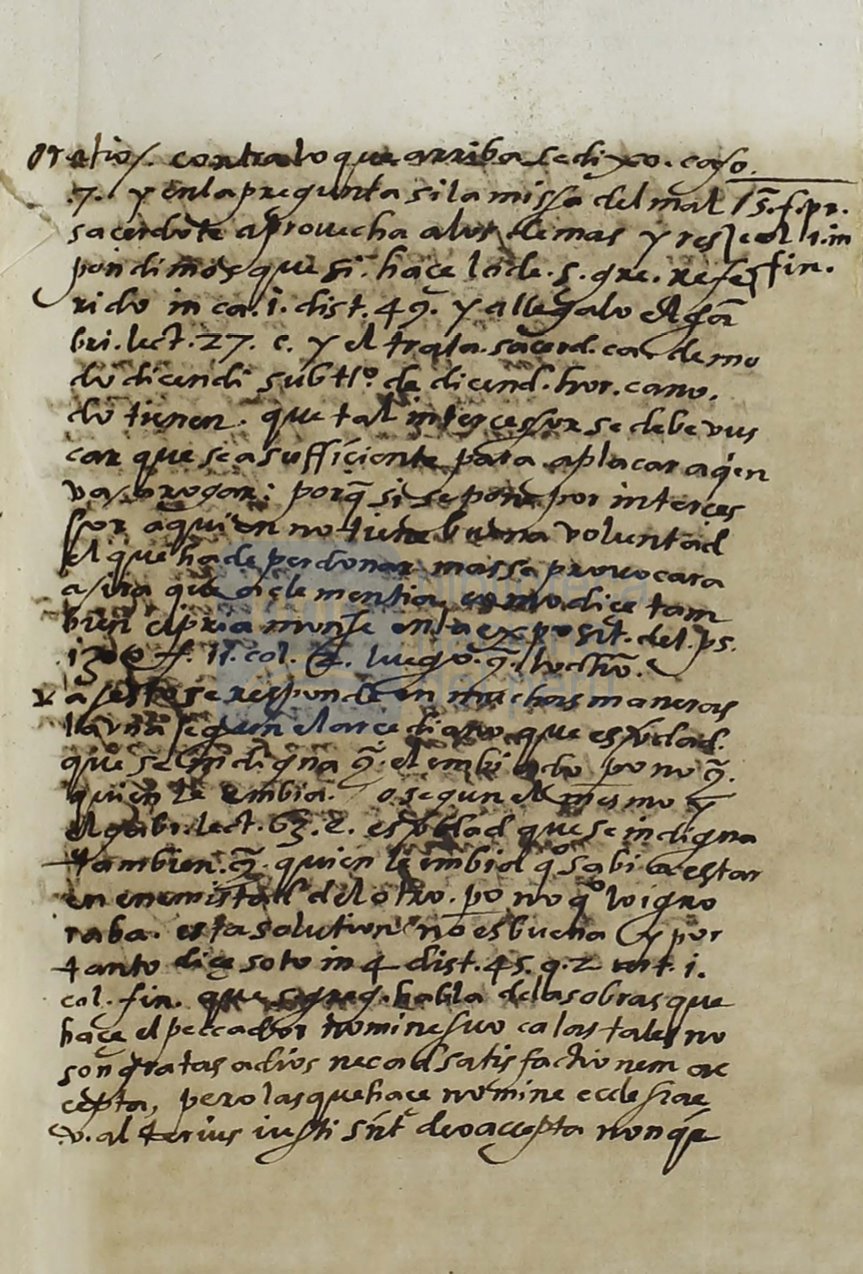 contra lo que arriba se dixo. caso.
7. y en la pregunta si la missa del mal
sacerdote aprovecha a los demas y res
pondimos que si. hace lo de. S. gre. refe
fin.
rido in ca. 1. dist. 49. y allegalo el gā
bri. lect. 27. c. y el trata. sacerd. ca. de mo
do dicendi sub tło. de dicend. hor. cano.
do tienen. que tal intercessor se debe vus
car que sea sufficiente para aplacar a qien
va a rogar: porq̄ si se pone por interces
sor a quien no tiene buena voluntad
el que ha de perdonar mas sa provocara
a ira que a clementia, como dice tam
bien en la exposit. del. ps.
col. luego. q̄.
a esto se responde en muchas maneras
la vna segun el arcediano que es verdad.
que se indigna q̄. el embiado po no q̄.
quien le embia. o segun el mesmo
el gabr. lect. 63. e. es verdad que se indigna
tambien. q̄. quien le embia qº sabia estar
en enemistad del otro. po no qº lo igno
raba. esta solution no es buena y por
tanto dice soto in 4 dist. 45. q. 2 art. 1.
col. fin. que s. greg. habla de las obras que
haçe el peccador nomine suo ca las tales no
son gratas a dios nec ad satisfactionem ac
cepta, pero las que haçe nomine ecclesiae
v. alterius iusti sūt deo accepta non